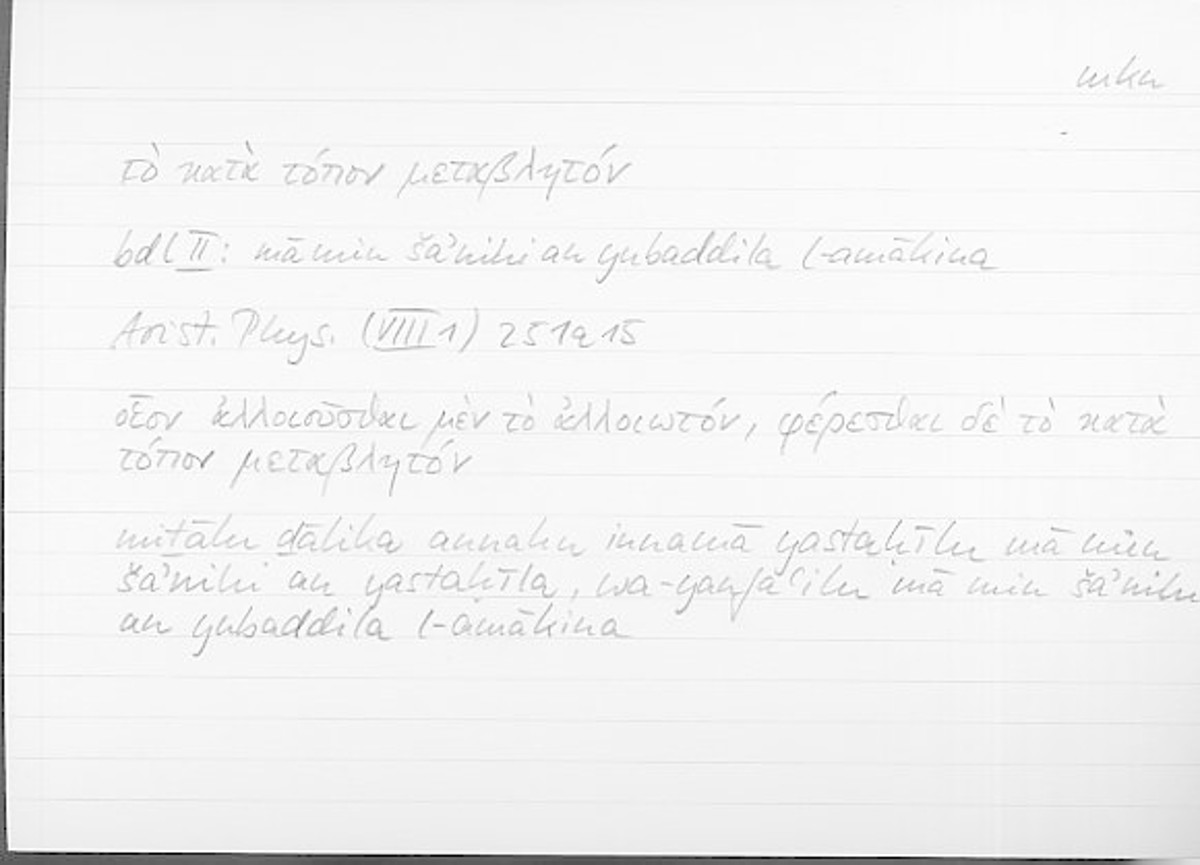 mkn
τὸ κατὰ τόπον μεταβλητόν
bdl II: mā min šaʾnihi an yubaddila l-amākina
Arist. Phys. (VIII 1) 251a15
οἷον ἀλλοιοῦσθαι μὲν τὸ ἀλλοιωτόν, φέρεσθαι δὲ τὸ κατὰ
τόπον μεταβλητόν
miṯālu ḏālika annahu innamā yastaḥīlu mā min
šaʾnihi an yastaḥīla, wa-yanfaʿilu mā min šaʾnihi
an yubaddila l-amākina